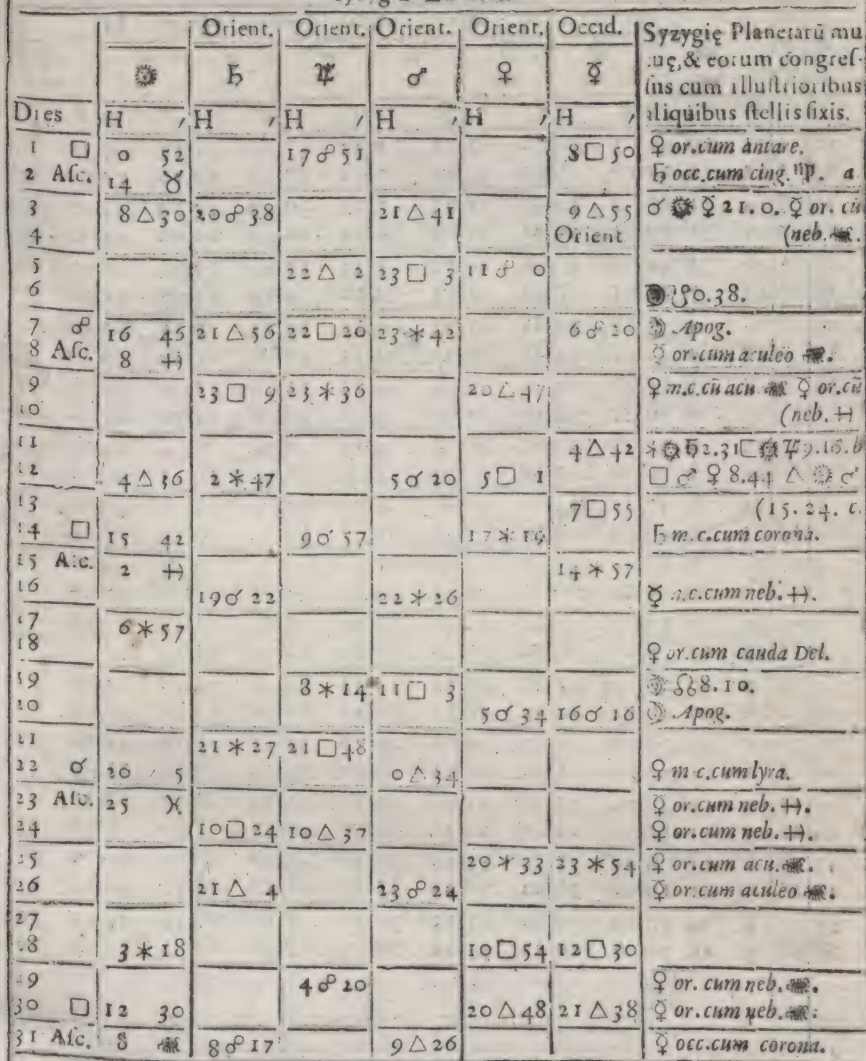 Orient. Orient. Orient. Orient. Occid. Syzygię Planetarū mu
☉ ♄ ♃ ♂ ♀ ☿ tuę, & eorum congreſ-
ſus cum illuſtrioribus
Dies H ′ H ′ H ′ H ′ H ′ H ′ aliquibus ſtellis fixis.
1 □ 0 52 17 ☍ 51 8 □ 50 ♀ or. cum antare.
2 Aſc. 14 ♉ ♄ occ. cum cing. ♍. a
3 8 △ 30 20 ☍ 38 21 △ 41 9 △ 55 ☌ ☉ ☿ 21. 0. ☿ or. cū
4 Orient (neb. ♏.
5 22 △ 2 23 □ 3 11 ☍ 0
6 ☽ ☋ 0.38.
7 ☍ 16 45 21 △ 56 22 □ 20 23 ✶ 42 6 ☍ 20 ☽ Apog.
8 Aſc. 8 ♐ ☿ or. cum aculeo ♏.
9 23 □ 9 23 ✶ 36 20 △ 47 ♀ m.c. cū acu. ♏ ☿ or. cū
10 (neb. ♐
11 4 △ 42 ✶ ☉ ♄ 2.31 □ ☉ ♃ 9.16. b
12 4 △ 36 2 ✶ 47 5 ☌ 20 5 □ 1 □ ♂ ♀ 8.44 △ ☉ ♂
13 7 □ 55 (15. 24. c.
14 □ 15 42 9 ☌ 57 17 ✶ 19 ♄ m.c. cum corona.
15 Aſc. 2 ♐ 14 ✶ 57
16 19 ☌ 22 22 ✶ 26 ☿ m.c. cum neb. ♐.
17 6 ✶ 57
18 ♀ or. cum cauda Del.
19 8 ✶ 14 11 □ 3 ☽ ☊ 8.10.
20 5 ☌ 34 16 ☌ 16 ☽ Apog.
21 21 ✶ 27 21 □ 48
22 ☌ 20 5 0 △ 34 ♀ m.c. cum lyra.
23 Aſc. 25 ♓ ☿ or. cum neb. ♐.
24 10 □ 24 10 △ 37 ♀ or. cum neb. ♐.
25 20 ✶ 33 23 ✶ 54 ♀ or. cum acu. ♏.
26 21 △ 4 23 ☍ 24 ☿ or. cum aculeo ♏.
27
28 3 ✶ 18 10 □ 54 12 □ 30
29 4 ☍ 20 ♀ or. cum neb. ♏.
30 □ 12 30 20 △ 48 21 △ 38 ☿ or. cum neb. ♏.
31 Aſc. 8 ♏ 8 ☍ 17 9 △ 26 ☿ occ. cum corona.